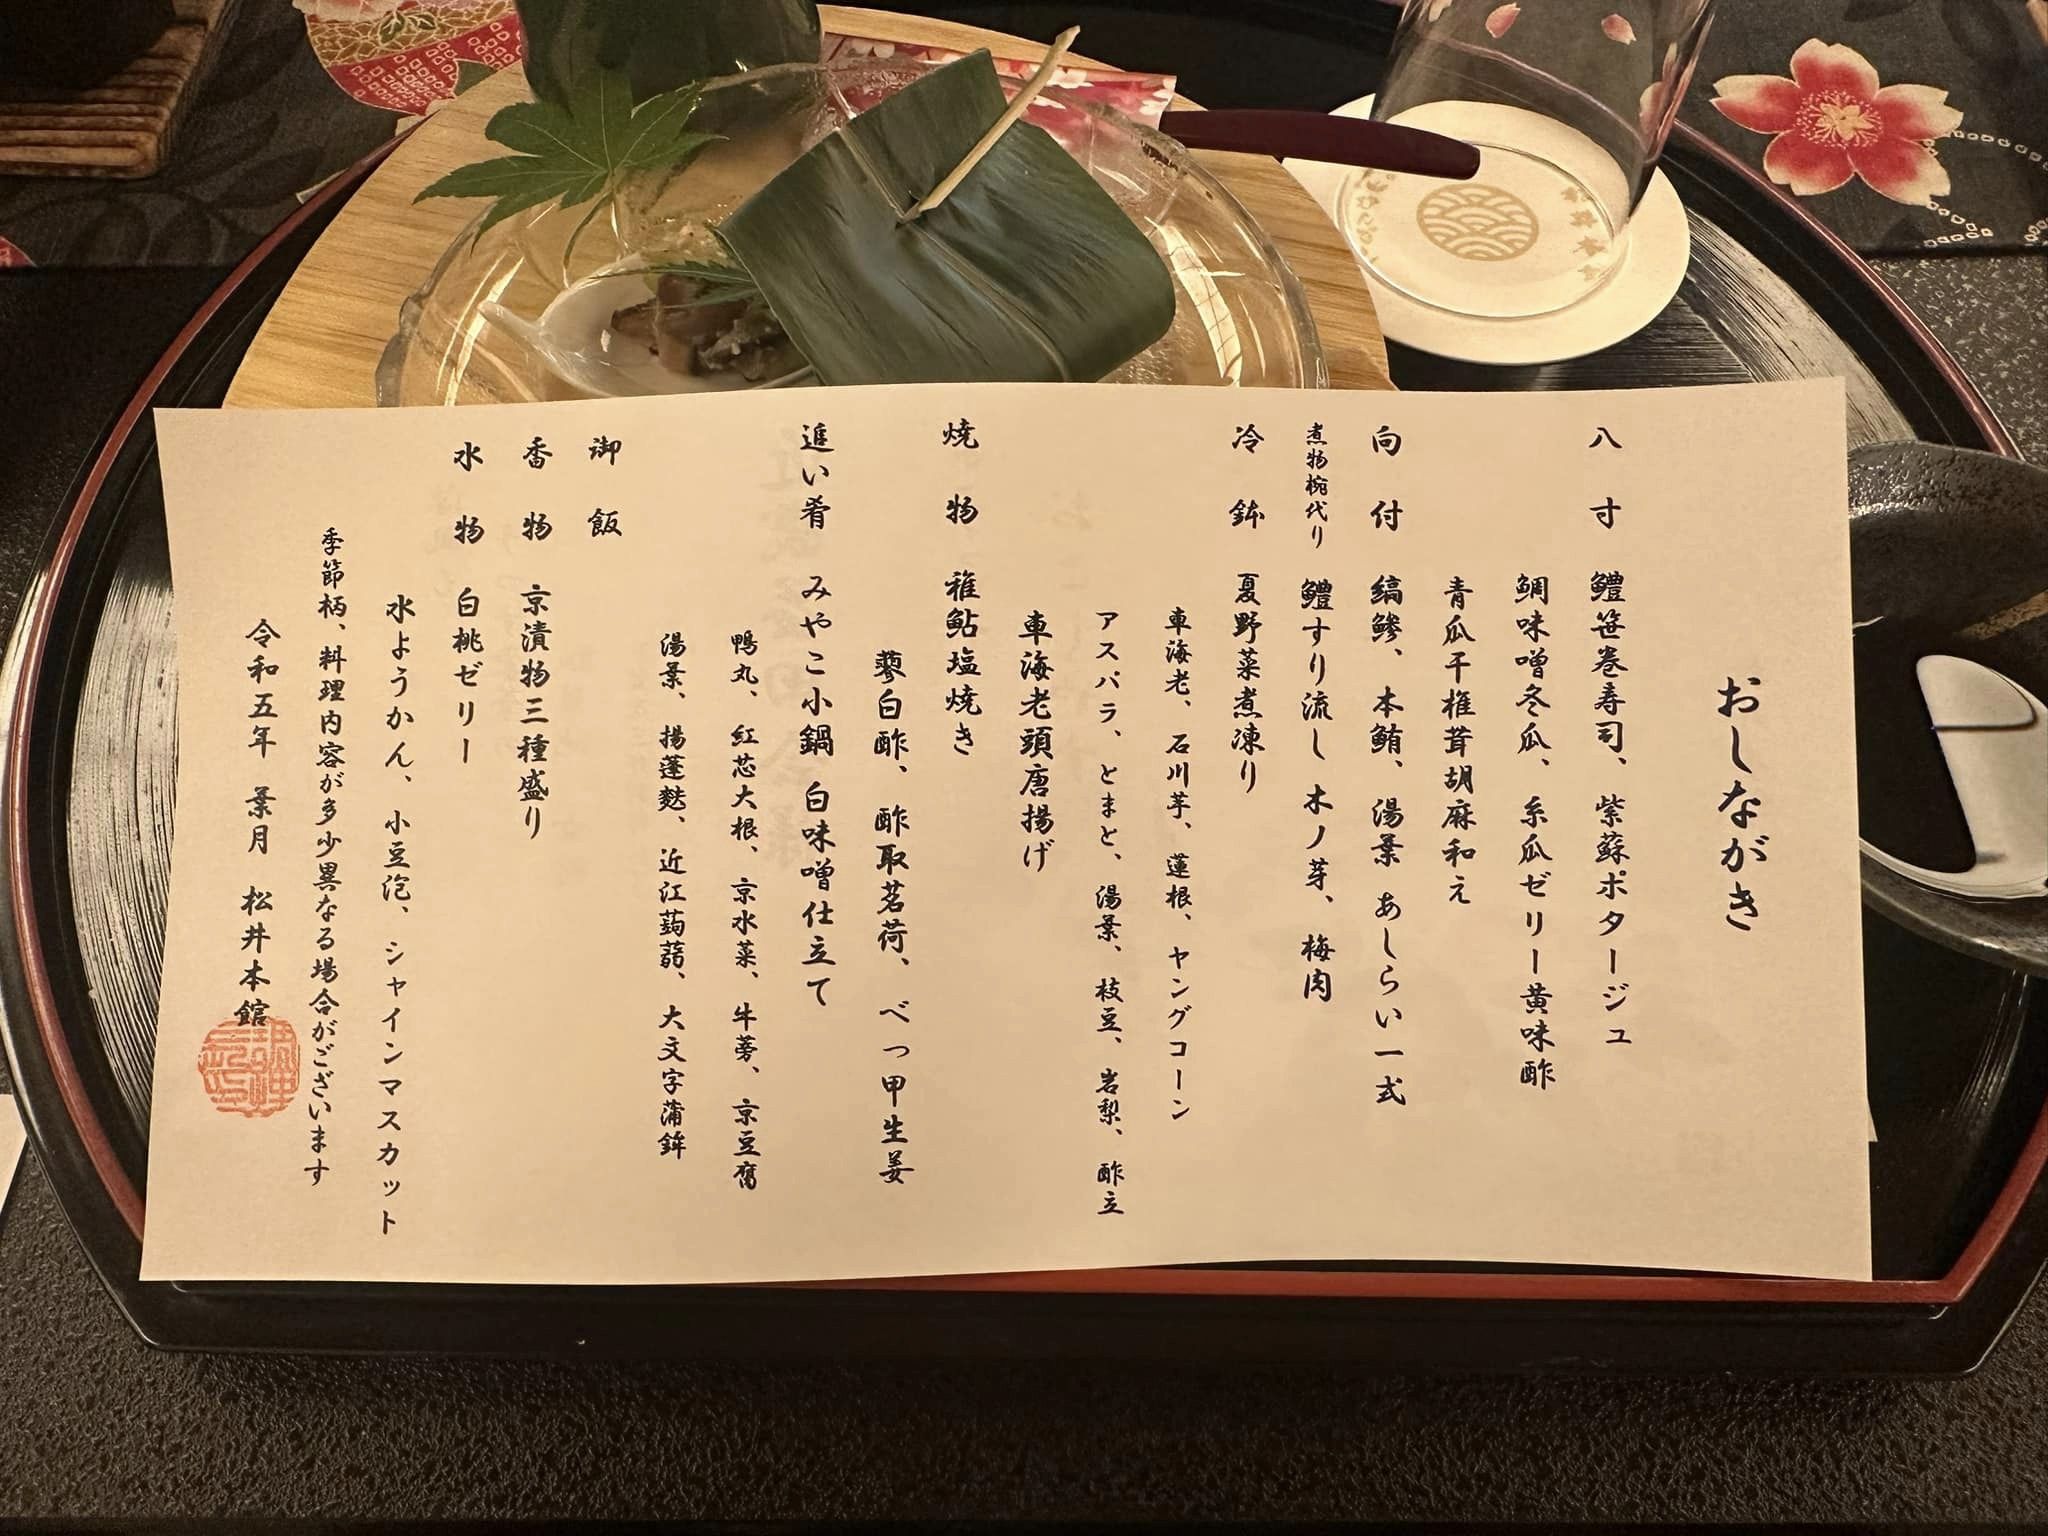 おしながき
八寸 鱧笹巻寿司、紫蘇ポタージュ
鯛味噌冬瓜、糸瓜ゼリー黄味酢
青瓜干椎茸胡麻和え
向付 縞鯵、本鮪、湯葉 あしらい一式
煮物椀代り 鱧すり流し 木ノ芽、梅肉
冷鉢 夏野菜煮凍り
車海老、石川芋、蓮根、ヤングコーン
アスパラ、とまと、湯葉、枝豆、岩梨、酢立
車海老頭唐揚げ
焼物 稚鮎塩焼き
蓼白酢、酢取茗荷、べっ甲生姜
追い肴 みやこ小鍋 白味噌仕立て
鴨丸、紅芯大根、京水菜、牛蒡、京豆腐
湯葉、揚蓬麩、近江蒟蒻、大文字蒲鉾
御飯
香物 京漬物三種盛り
水物 白桃ゼリー
水ようかん、小豆泡、シャインマスカット
季節柄、料理内容が多少異なる場合がございます
令和五年 葉月 松井本館